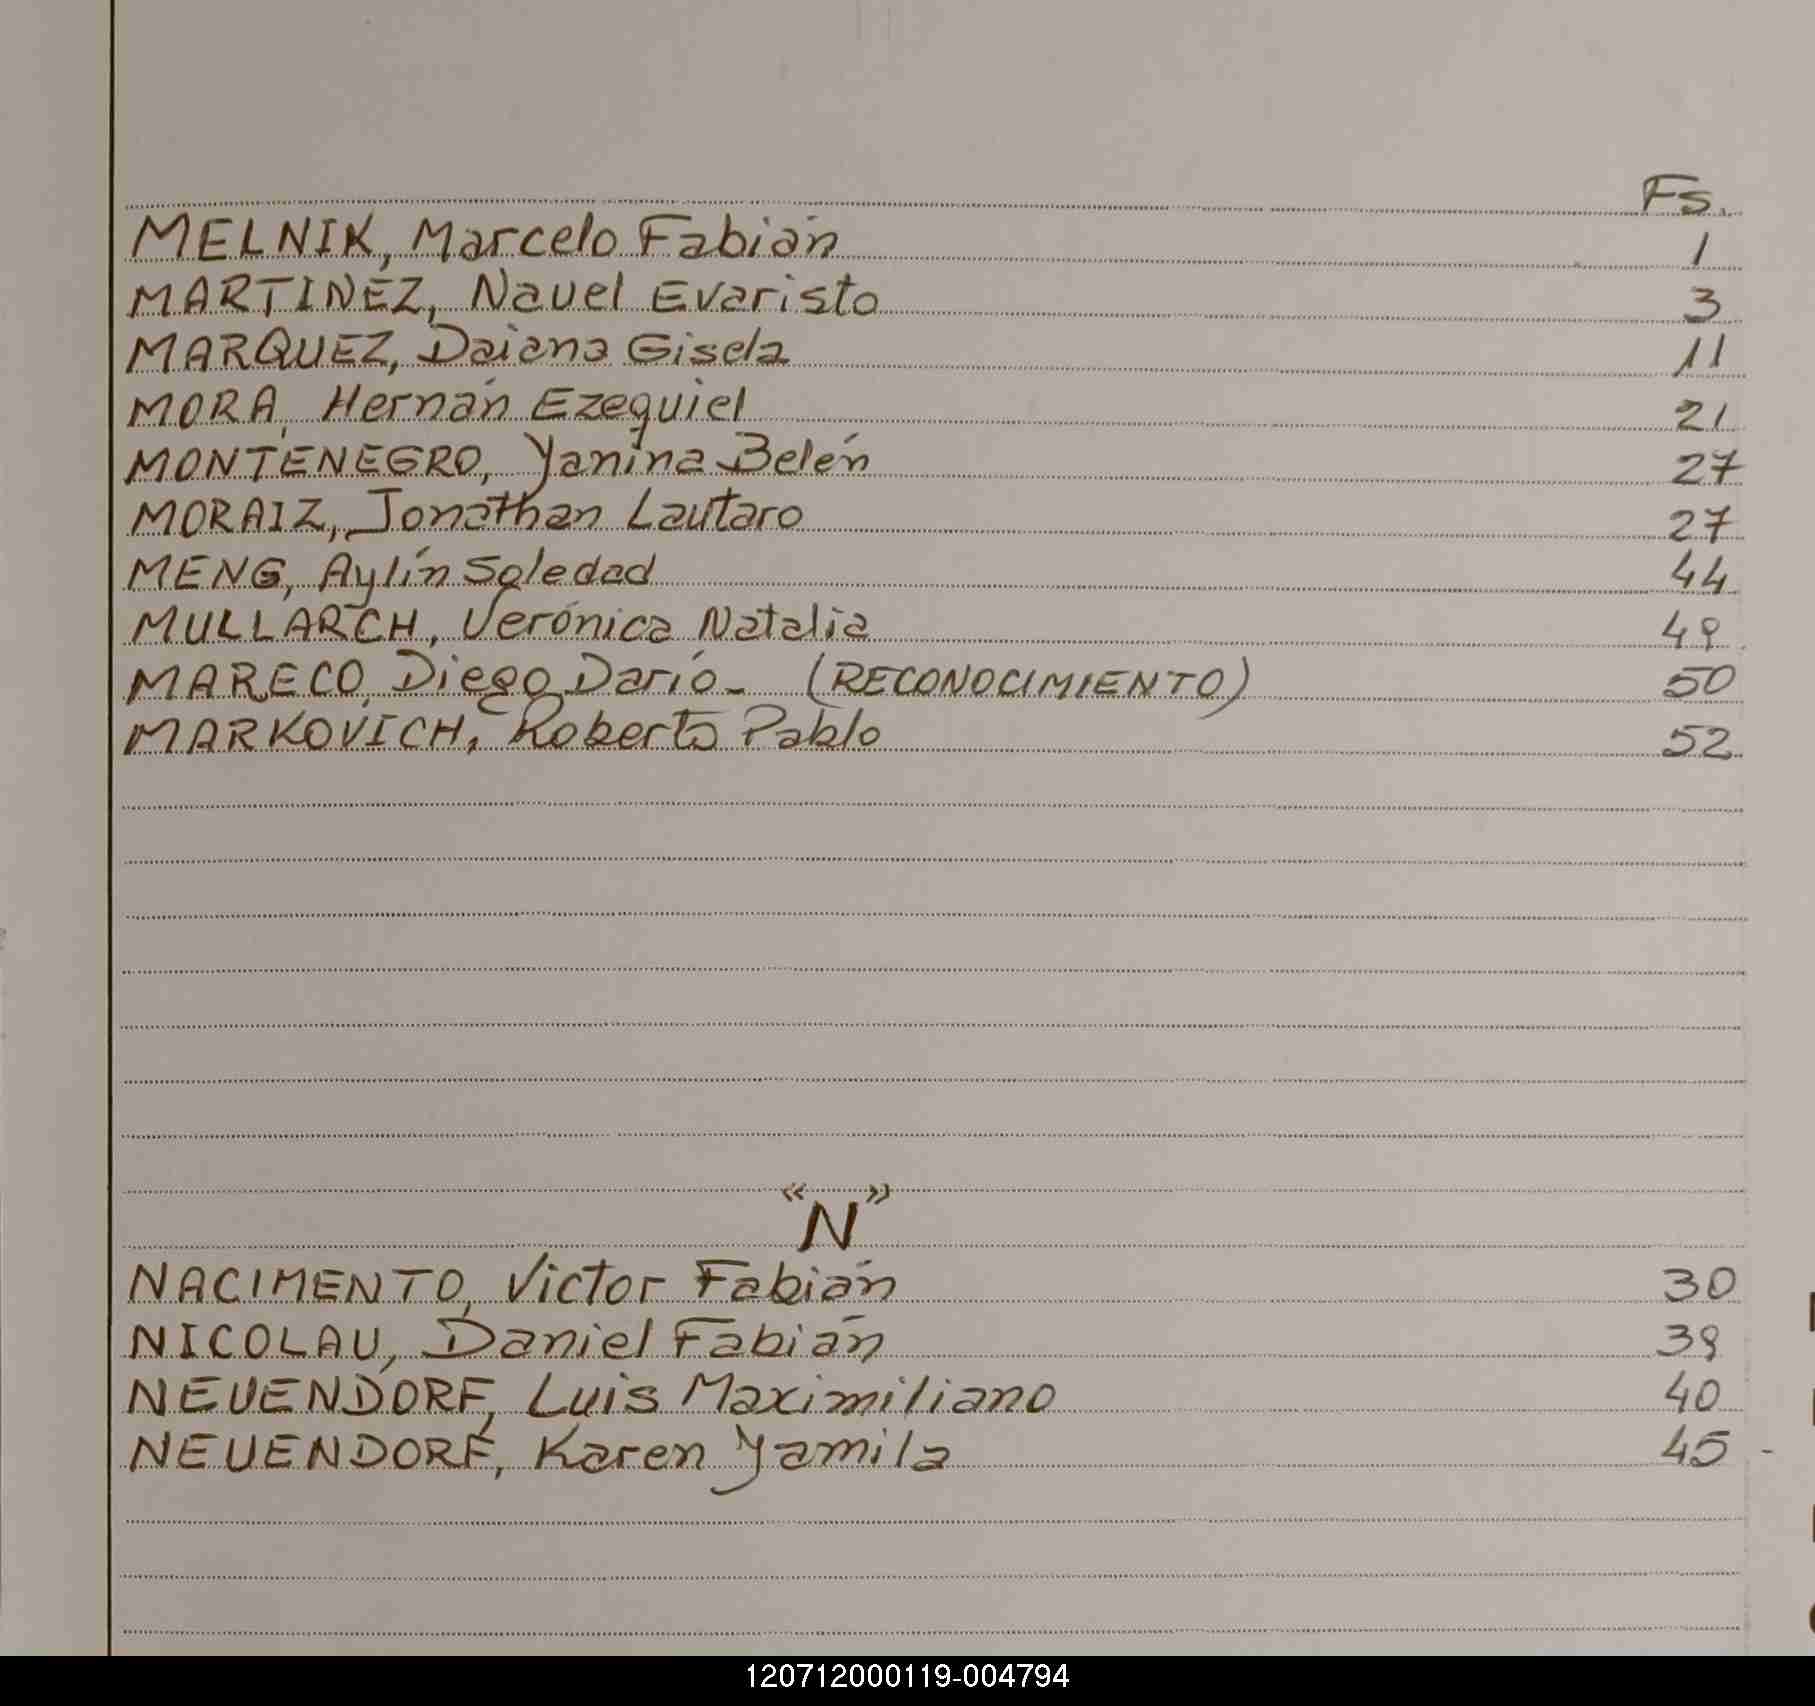 Fs.
MELNIK, Marcelo Fabián 1
MARTINEZ, Nauel Evaristo 3
MARQUEZ, Daiana Gisela 11
MORA, Hernán Ezequiel 21
MONTENEGRO, Yanina Belén 27
MORAIZ, Jonathan Lautaro 27
MENG, Aylín Soledad 44
MULLARCH, Verónica Natalia 49
MARECO, Diego Darío- (RECONOCIMIENTO) 50
MARKOVICH, Roberto Pablo 52
"N"
NACIMENTO, Victor Fabián 30
NICOLAU, Daniel Fabián 39
NEUENDORF, Luis Maximiliano 40
NEUENDORF, Karen Yamila 45 -
120712000119-004794